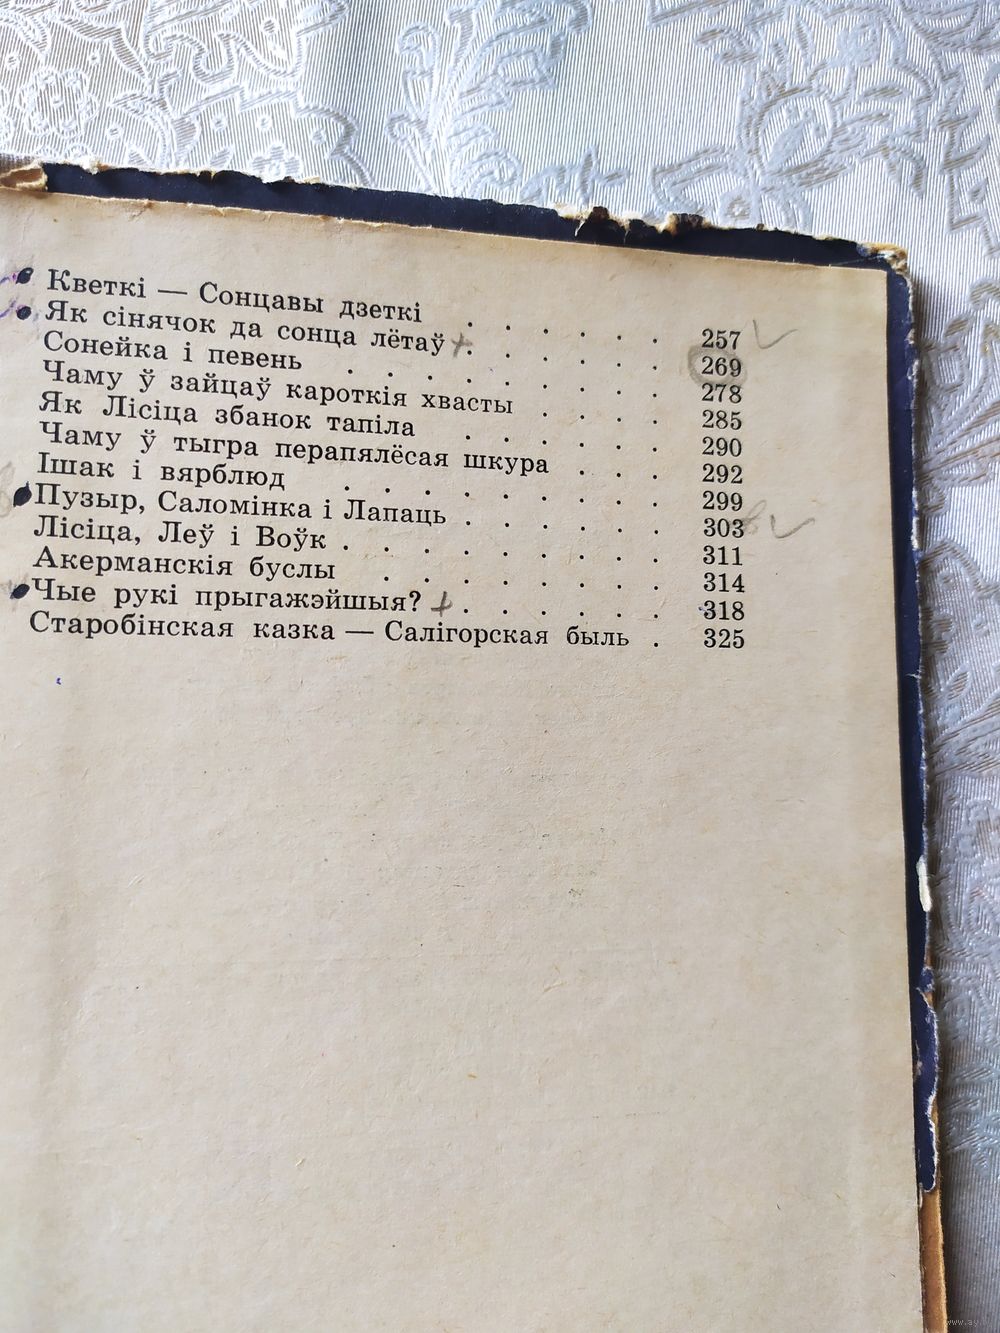 Кветкі — Сонцавы дзеткі . . . . . . 257
Як сінячок да сонца лётаў + . . . . . . 269
Сонейка і певень . . . . . . . . . 278
Чаму ў зайцаў кароткія хвасты . . . . 285
Як Лісіца збанок тапіла . . . . . . 290
Чаму ў тыгра перапялёсая шкура . . . 292
Ішак і вярблюд . . . . . . . . . 299
Пузыр, Саломінка і Лапаць . . . . . . 303
Лісіца, Леў і Воўк . . . . . . . . . 311
Акерманскія буслы . . . . . . . . 314
Чые рукі прыгажэйшыя? + . . . . . . 318
Старобінская казка — Салігорская быль . 325